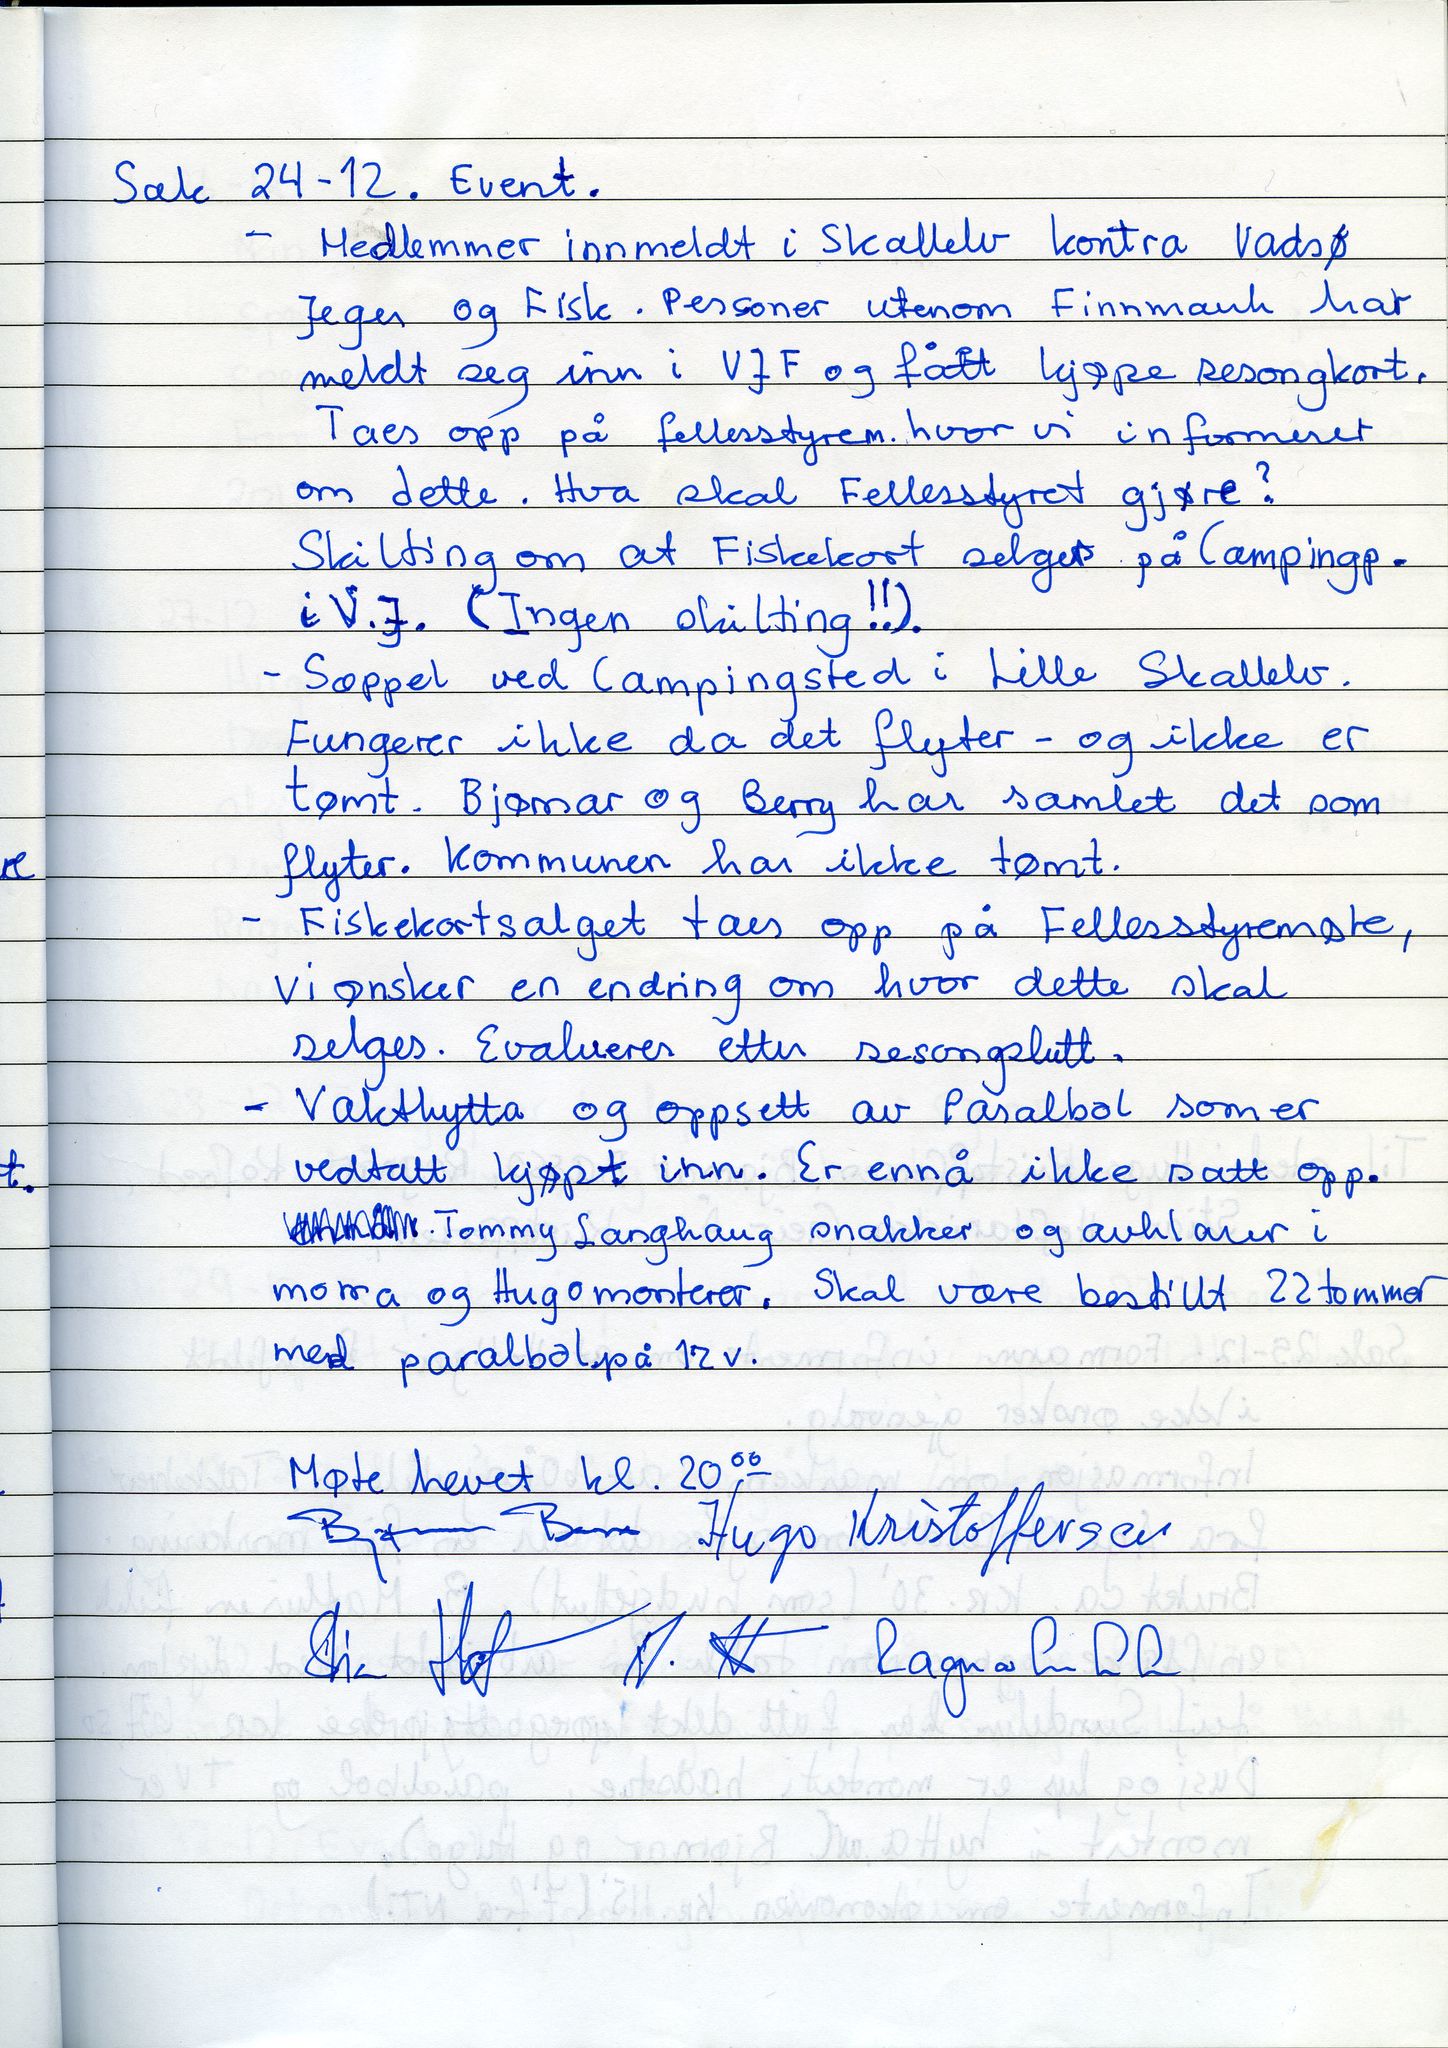 Sak 24-12. Event.
- Medlemmer innmeldt i Skallelv kontra Vadsø
Jeger og Fisk. Personer utenom Finnmark har
meldt seg inn i VJF og fått kjøpe sesongkort.
Taes opp på fellesstyrem. hvor vi informerer
om dette. Hva skal Fellesstyret gjøre?
Skilting om at Fiskekort selges på Campingp.
i V.J. (Ingen skilting!!).
- Søppel ved Campingsted i Lille Skallelv.
Fungerer ikke da det flyter - og ikke er
tømt. Bjørnar og Berry har samlet det som
flyter. Kommunen har ikke tømt.
- Fiskekortsalget taes opp på Fellesstyremøte,
Vi ønsker en endring om hvor dette skal
selges. Evalueres etter sesongslutt.
- Vakthytta og oppsett av Paralbol som er
vedtatt kjøpt inn. Er ennå ikke satt opp.
Tommy Langhaug snakker og avklarer i
morra og Hugo monterer. Skal være bestillt 22 tommer
med paralbol på 12 v.
Møte hevet kl. 20.00
Hugo Kristoffersen
Ragna